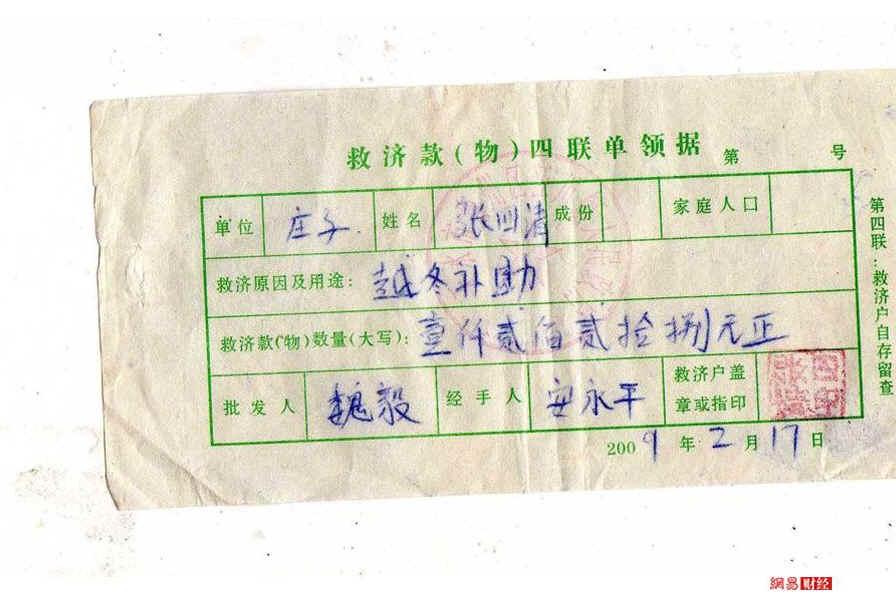 救济款(物)四联单领据 第 号
单位 庄子 姓名 张四清 成份 家庭人口
救济原因及用途: 越冬补助
救济款(物)数量(大写): 壹仟贰佰贰拾捌元正
批发人 魏毅 经手人 安永平 救济户盖章或指印
2009年2月17日
第四联:救济户自存留查
網易财经